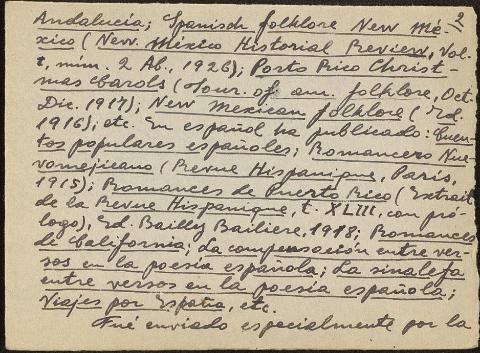 2
Andalucía; Spanish folklore New Mé-
xico (New. México Historial Review, Vol.
1, núm. 2 Ab., 1926); Porto Rico Christ-
mas Carols (Jour. of am. folklore, Oct-
Dic. 1917); New Mexican folklore (Ed.
1916); etc. En español ha publicado: Cuen-
tos populares españoles; Romancero Nue-
vomejicano (Revue Hispanique, París,
1915); Romances de Puerto Rico (Extrait
de la Revue Hispanique, t. XLIII, con pró-
logo), Ed. Bailly Bailiere, 1918; Romances
de California; La compensación entre ver-
sos en la poesía española; La sinalefa
entre versos en la poesía española;
Viajes por España, etc.
Fué enviado especialmente por la